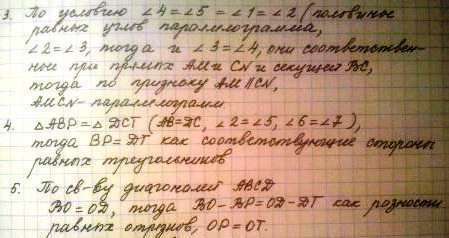 3. По условию ∠4=∠5=∠1=∠2 (половины
равных углов параллелограмма,
∠2=∠3, тогда и ∠3=∠4, они соответствен-
ные при прямых АМ и CN и секущей ВС,
тогда по признаку АМ||CN,
AMCN- параллелограмм
4. △ABP=△DCT (AB=DC, ∠2=∠5, ∠6=∠7),
тогда BP=DT как соответствующие стороны
равных треугольников
5. По св-ву диагоналей ABCD
BO=OD, тогда BO-BP=OD-DT как разности
равных отрезков, OP=OT.